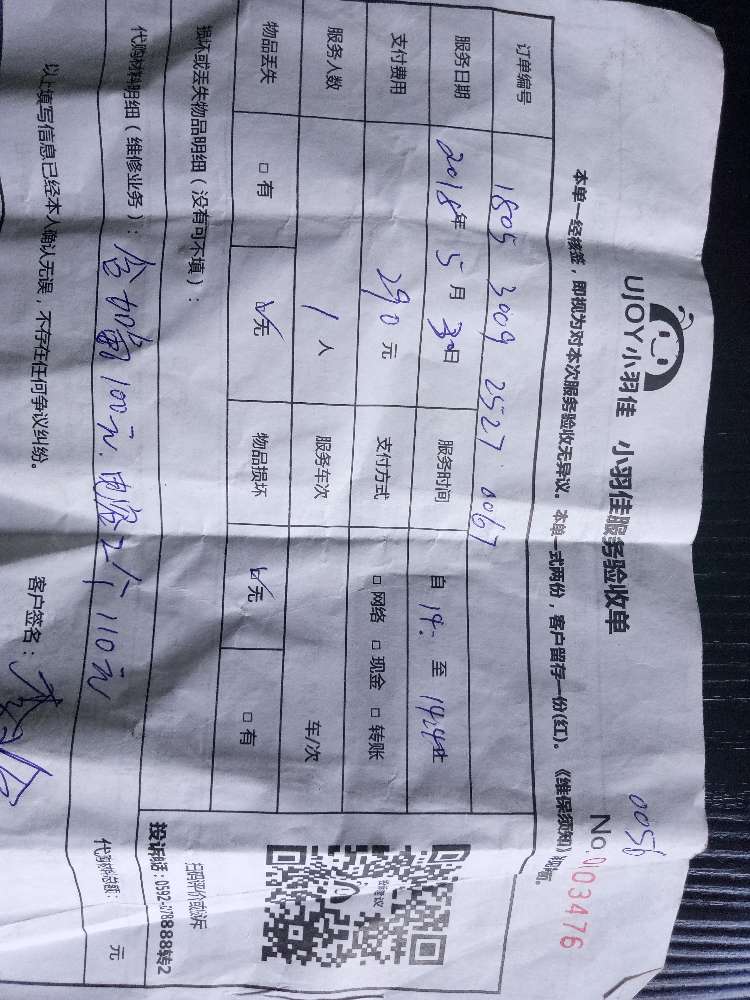 0056
UJOY小羽佳 小羽佳服务验收单
No.003476
本单一经核签，即视为对本次服务验收无异议。本单一式两份，客户留存一份(红)。《维保须知》
订单编号 1805 3009 2527 0067
服务日期 2018年 5月 30日 服务时间 自 14. 至
支付费用 290元 支付方式 □ 网络 □ 现金 □ 转账
服务人数 1 人 服务车次 车/次
物品丢失 □ 有 ☑ 无 物品损坏 ☑ 无 □ 有
损坏或丢失物品明细（没有可不填）：
扫码评价或投诉
投诉电话：0592-
888转2
代购材料明细（维修业务）： 含加 100元. 电容2个 110元
元
以上填写信息已经本人确认无误，不存在任何争议纠纷。
客户签名：